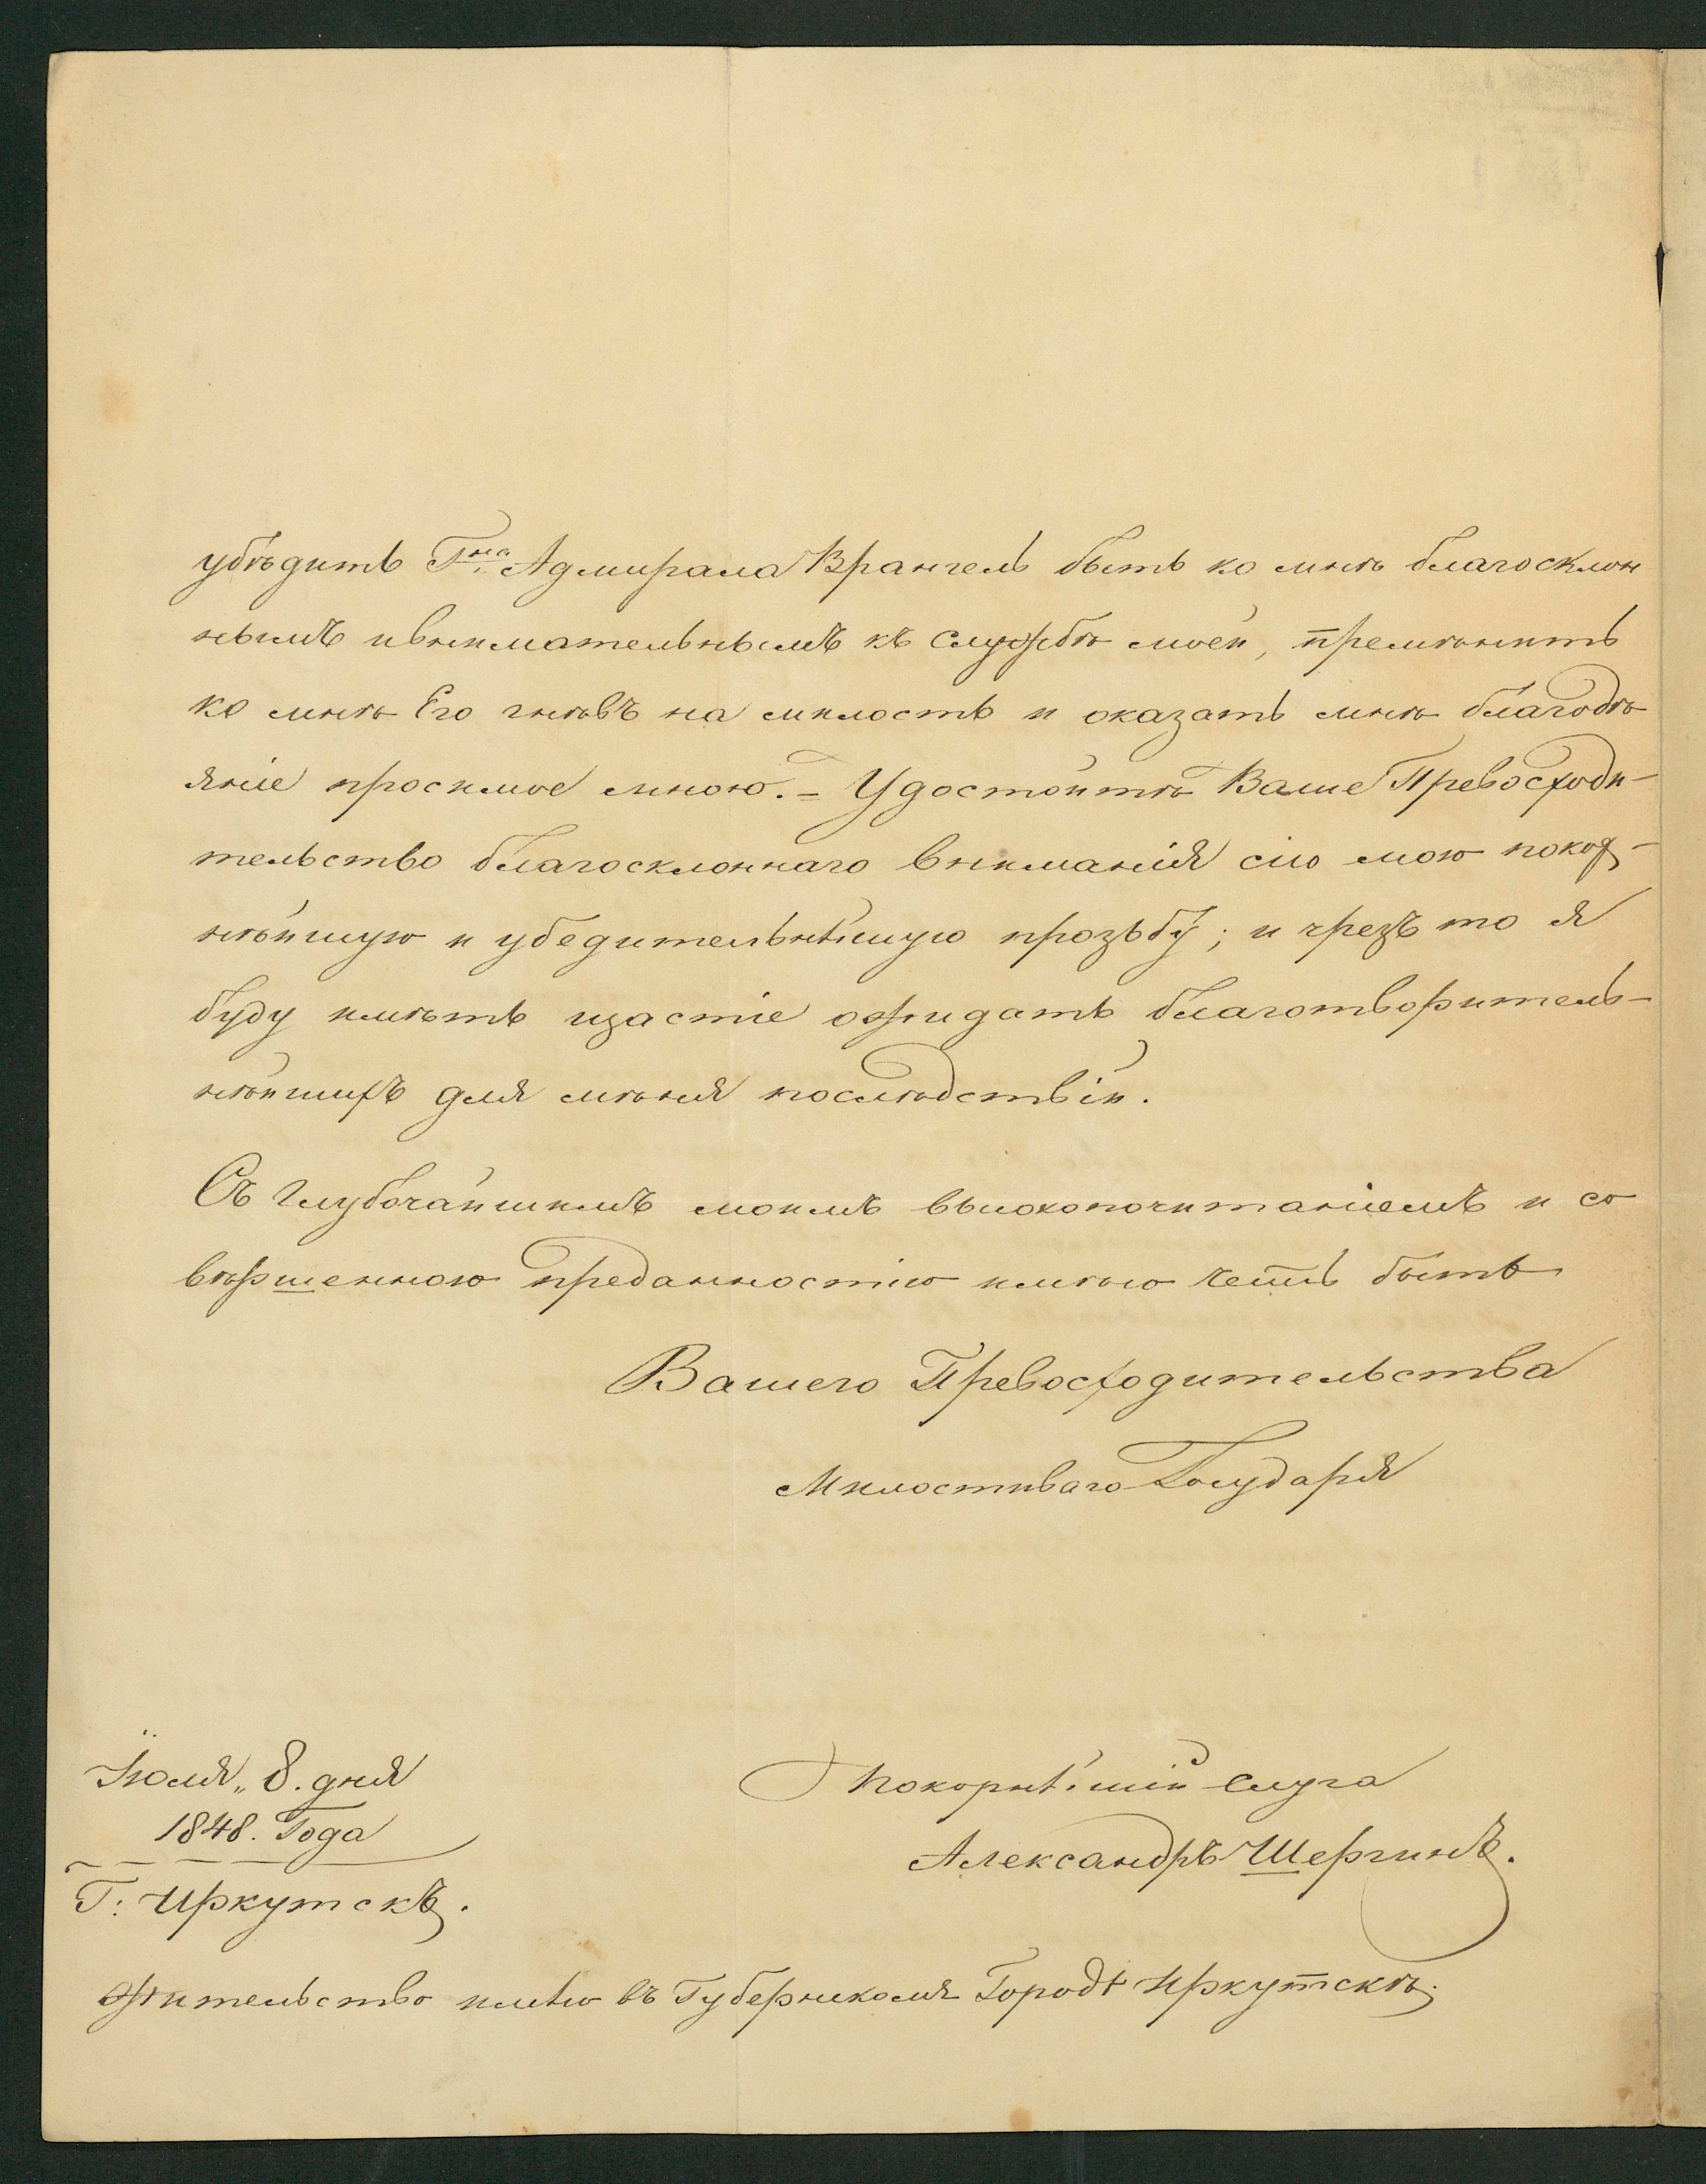 убѣдить Г.на Адмирала Врангель быть ко мнѣ благосклон
нымъ ивнимательнымъ къ службѣ моей, премѣнить
ко мнѣ Его гнѣвъ на милость и оказать мнѣ благодѣ
яніе просимое мною. = Удостойтѣ Ваше Превосходи-
тельство благосклоннаго вниманія сію мою покор-
нѣйшую и убедительнѣйшую прозьбу; и чрезъ то я
буду имѣть щастіе ожидать благотворитель-
нѣйшихъ для мѣня послѣдствій.
Съ Глубочайшимъ моимъ высокопочитаніемъ и со
вѣршенною преданностію имѣю честь быть
Вашего Превосходительства
Милостиваго Государя
Покорнѣйшій слуга
Александръ Шергинъ.
Іюля „ 8. дня
1848. Года
Г: Иркутскъ.
Жительство имѣю въ Губернскомъ Городѣ Иркутскѣ.